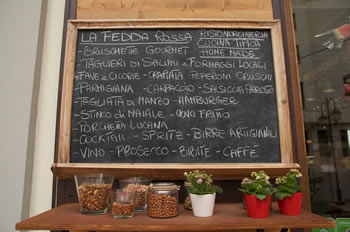 LA FEDDA ROSSA
RISTONORCINERIA
CUCINA TIPICA
HOME MADE
- BRUSCHETTE GOURMET
- TAGLIERI DI SALUMI e FORMAGGI LOCALI
- FAVE e CICORIE - CRAPIATA PEPERONI CRUSCHI
- PARMIGIANA - CARPACCIO - SALSICCIA
- TAGLIATA DI MANZO - HAMBURGER
- STINCO DI MAIALE - UOVO FRITTO
- PORCHETTA LUCANA
- COCKTAIL - SPRITZ - BIRRE ARTIGIANALI
- VINO - PROSECCO - BIBITE - CAFFÈ